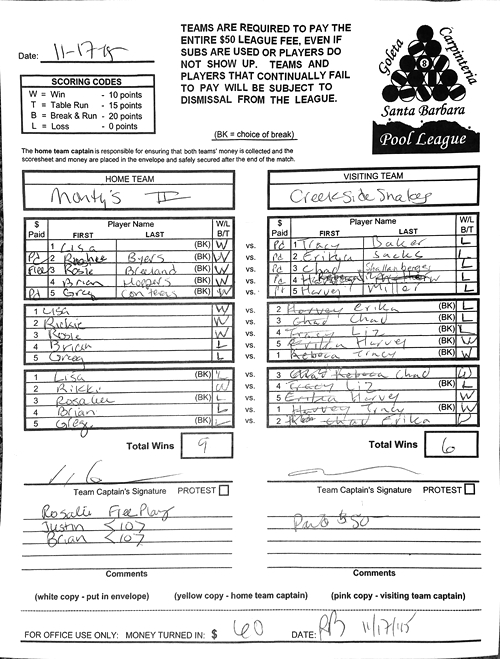 Date: 11-17-15
SCORING CODES
W = Win - 10 points
T = Table Run - 15 points
B = Break & Run - 20 points
L = Loss - 0 points
TEAMS ARE REQUIRED TO PAY THE
ENTIRE $50 LEAGUE FEE, EVEN IF
SUBS ARE USED OR PLAYERS DO
NOT SHOW UP. TEAMS AND
PLAYERS THAT CONTINUALLY FAIL
TO PAY WILL BE SUBJECT TO
DISMISSAL FROM THE LEAGUE.
(BK = choice of break)
Goleta
Carpinteria
8
Santa Barbara
Pool League
The home team captain is responsible for ensuring that both teams' money is collected and the
scoresheet and money are placed in the envelope and safely secured after the end of the match.
HOME TEAM
Monty's II
$ Paid Player Name FIRST LAST W/L B/T
1 Lisa (BK) W
Pd 2 Byers W
Free 3 Rosie Breeland (BK) W
4 Brian Hoppers W
Pd 5 Greg (BK) W
1 Lisa W
2 Rickie W
3 Rosie W
4 Brian L
5 Greg L
1 Lisa (BK) L
2 Rikki W
3 Rosalee (BK) L
4 Brian L
5 Greg (BK) L
vs.
VISITING TEAM
Creekside Snakes
$ Paid Player Name FIRST LAST W/L B/T
Pd 1 Tracy Baker L
Pd 2 Sacks L
Pd 3 Chad L
Pd 4 (BK)
Pd 5 Harvey L
2 Harvey Erika (BK) L
3 Chad Chad L
4 Tracy Liz (BK) L
5 Erika Harvey W
1 Rebeca Tracy (BK) W
3 Rebeca Chad W
4 Tracy Liz (BK) L
5 Erika Harvey W
1 Harvey Tracy (BK) W
2 Chad Erika
Total Wins 9
Total Wins 6
Team Captain's Signature PROTEST
Team Captain's Signature PROTEST
Rosalie Free Play
Justin <10>
Brian <10>
Paid $50
Comments
Comments
(white copy - put in envelope) (yellow copy - home team captain) (pink copy - visiting team captain)
FOR OFFICE USE ONLY: MONEY TURNED IN: $ 60 DATE: RB 11/17/15